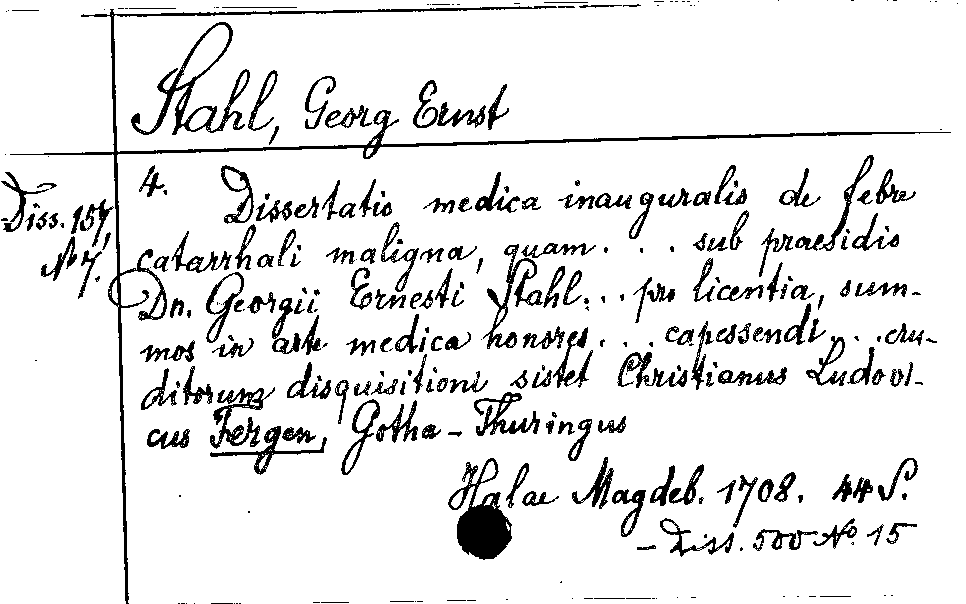 Stahl, Georg Ernst
Diss. 157,
No 7.
4. Dissertatio medica inauguralis de febre
catarrhali maligna, quam . . . sub praesidio
Dn. Georgii Ernesti Stahl . . . pro licentia, sum-
mos in arte medica honores . . . capessendi . . . eru-
ditorum disquisitioni sistet Christianus Ludovi-
cus Fergen, Gotha-Thuringus
Halae Magdeb. 1708. 44 S.
- Diss. 500 No. 15